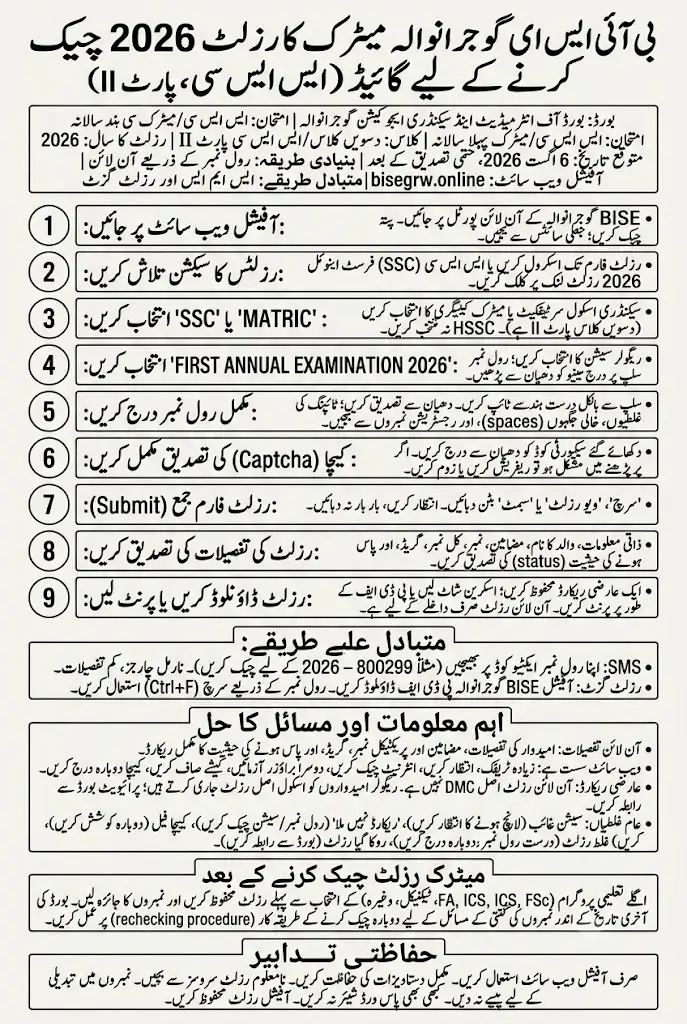 بی آئی ایس ای گوجرانوالہ میٹرک کا رزلٹ 2026 چیک
کرنے کے لیے گائیڈ (ایس ایس سی، پارٹ II)
بورڈ: بورڈ آف انٹرمیڈیٹ اینڈ سیکنڈری ایجوکیشن گوجرانوالہ | امتحان: ایس ایس سی/میٹرک سی بند سالانہ
امتحان: ایس ایس سی/میٹرک پہلا سالانہ | کلاس: دسویں کلاس/ایس ایس سی پارٹ II | رزلٹ کا سال: 2026
متوقع تاریخ: 6 اگست 2026، حتمی تصدیق کے بعد | بنیادی طریقہ: رول نمبر کے ذریعے آن لائن |
آفیشل ویب سائٹ: bisegrw.online | متبادل طریقے: ایس ایم ایس اور رزلٹ گزٹ
1 آفیشل ویب سائٹ پر جائیں:
• BISE گوجرانوالہ کے آن لائن پورٹل پر جائیں۔ پتہ
چیک کریں؛ جعلی سائٹس سے بچیں۔
2 رزلٹس کا سیکشن تلاش کریں:
• رزلٹ فارم تک اسکرول کریں یا ایس ایس سی (SSC) فرسٹ اینوئل
2026 رزلٹ لنک پر کلک کریں۔
3 'MATRIC' یا 'SSC' انتخاب کریں:
• سیکنڈری اسکول سرٹیفکیٹ یا میٹرک کیٹیگری کا انتخاب کریں
(دسویں کلاس پارٹ II ہے)۔ HSSC نہ منتخب کریں۔
4 'FIRST ANNUAL EXAMINATION 2026' انتخاب کریں:
• ریگولر سیشن کا انتخاب کریں؛ رول نمبر
سلپ پر درج مینیو کو دھیان سے پڑھیں۔
5 مکمل رول نمبر درج کریں:
• سلپ سے بالکل درست ہندسے ٹائپ کریں۔ دھیان سے تصدیق کریں؛ ٹائپنگ کی
غلطیوں، خالی جگہوں (spaces)، اور رجسٹریشن نمبروں سے بچیں۔
6 کیپچا (Captcha) کی تصدیق مکمل کریں:
• دکھائے گئے سیکیورٹی کوڈ کو دھیان سے درج کریں۔ اگر
پر پڑھنے میں مشکل ہو تو ریفریش کریں یا زوم کریں۔
7 رزلٹ فارم جمع (Submit):
• 'سرچ'، 'ویو رزلٹ' یا 'سبمٹ' بٹن دبائیں۔ انتظار کریں، بار بار نہ دبائیں۔
8 رزلٹ کی تفصیلات کی تصدیق کریں:
• ذاتی معلومات، والد کا نام، مضامین، نمبر، کل نمبر، گریڈ، اور پاس
ہونے کی حیثیت (status) کی تصدیق کریں۔
9 رزلٹ ڈاؤنلوڈ کریں یا پرنٹ لیں:
• ایک عارضی ریکارڈ محفوظ کریں؛ اسکرین شاٹ لیں یا پی ڈی ایف کے
طور پر پرنٹ کریں۔ آن لائن رزلٹ صرف داخلے کے لیے ہے۔
متبادل علیے طریقے:
• SMS: اپنا رول نمبر ایکٹیو کوڈ پر بھیجیں (مثلاً 800299 – 2026 کے لیے چیک کریں)۔ نارمل چارجز، کم تفصیلات۔
• رزلٹ گزٹ: آفیشل BISE گوجرانوالہ پی ڈی ایف ڈاؤنلوڈ کریں۔ رول نمبر کے ذریعے سرچ (Ctrl+F) استعمال کریں۔
اہم معلومات اور مسائل کا حل
• آن لائن تفصیلات: امیدوار کی تفصیلات، مضامین اور پریکٹیکل نمبر، گریڈ، اور پاس ہونے کی حیثیت کا مکمل ریکارڈ۔
• ویب سائٹ سست ہے: زیادہ ٹریفک، انتظار کریں، انٹرنیٹ چیک کریں، دوسرا براؤزر آزمائیں، کیشے صاف کریں، کیپچا دوبارہ درج کریں۔
• عارضی ریکارڈ: آن لائن رزلٹ اصل DMC نہیں ہے۔ ریگولر امیدواروں کو اسکول اصل رزلٹ جاری کرتے ہیں؛ پرائیویٹ بورڈ سے
رابطہ کریں۔
• عام غلطیاں: سیشن غائب (لانچ ہونے کا انتظار کریں)، 'ریکارڈ نہیں ملا' (رول نمبر/سیشن چیک کریں)، کیپچا فیل (دوبارہ کوشش کریں)،
کریں) غلط رزلٹ (درست رول نمبر، دوبارہ درج کریں)، روکا گیا رزلٹ (بورڈ سے رابطہ کریں)۔
میٹرک رزلٹ چیک کرنے کے بعد
اگلے تعلیمی پروگرام (FA, ICS, ICS, FSc، ٹیکنیکل، وغیرہ) کے انتخاب سے پہلے رزلٹ محفوظ کریں اور نمبروں کا جائزہ لیں۔ بورڈ کی
آخری تاریخ کے اندر نمبروں کی گنتی کے مسائل کے لیے دوبارہ چیک کرنے کے طریقہ کار (rechecking procedure) پر عمل کریں۔
حفاظتی تدابیر
صرف آفیشل ویب سائٹ استعمال کریں۔ مکمل دستاویزات کی حفاظت کریں۔ نامعلوم رزلٹ سروسز سے بچیں۔ نمبروں میں تبدیلی
کے لیے پیسے نہ دیں۔ کبھی بھی پاس ورڈ شیئر نہ کریں۔ آفیشل رزلٹ محفوظ کریں۔